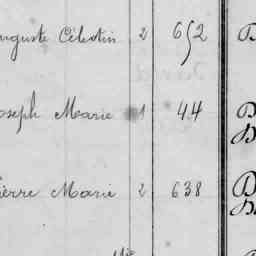 uguste Célestin 2 652
oseph Marie 1 44
ierre Marie 2 638